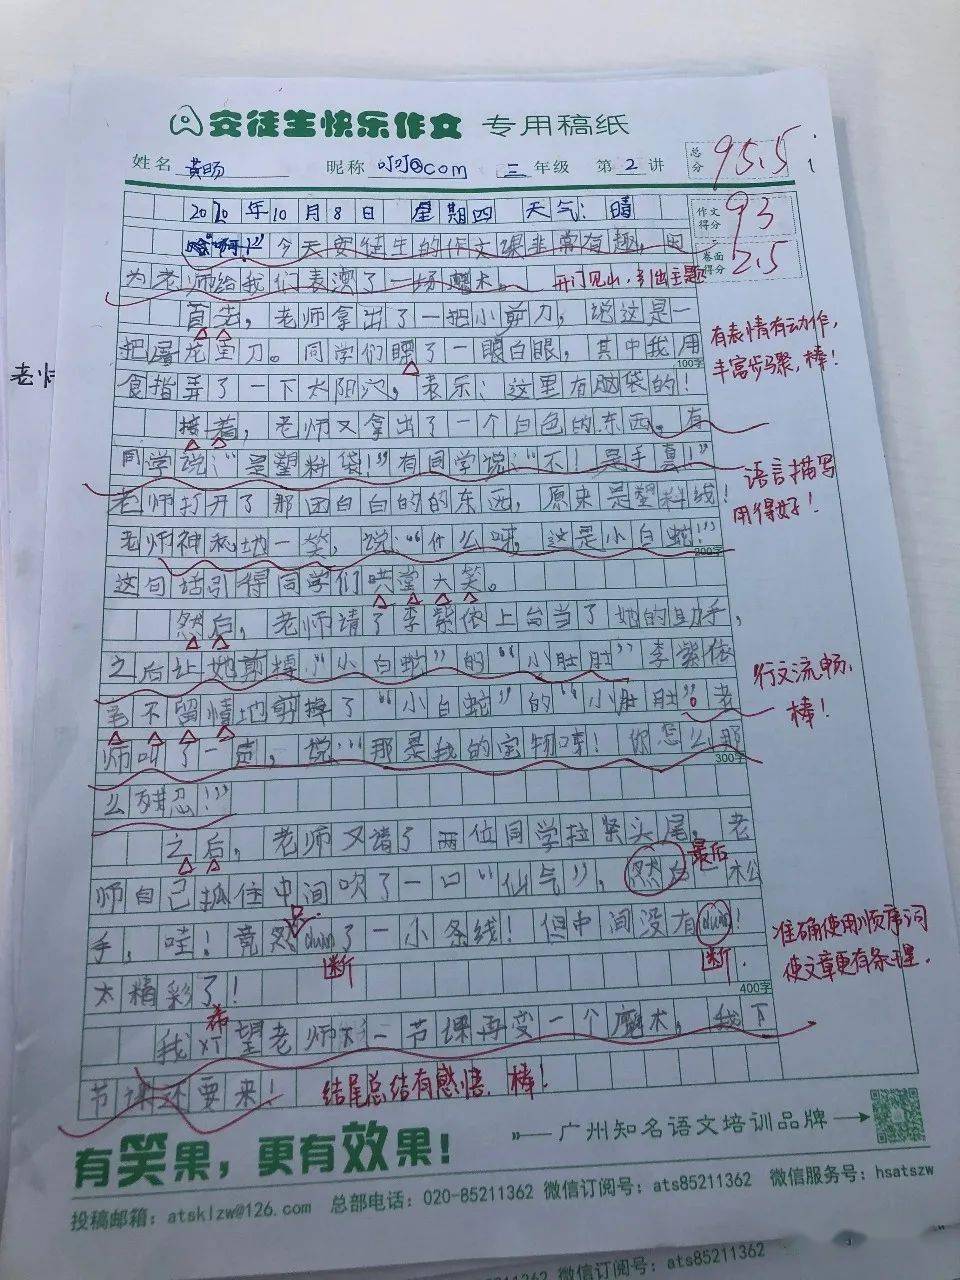 安徒生快乐作文 专用稿纸
姓名 黄旸 昵称 叮叮@com 三年级 第2讲
总分 95.5
作文得分 93
卷面得分 2.5
2020年10月8日 星期四 天气：晴
“哈啊！”今天安徒生的作文课非常有趣，因
为老师给我们表演了一场魔术。
开门见山，引出主题
首先，老师拿出了一把小剪刀，说这是一
把屠龙宝刀。同学们瞟了一眼白眼，其中我用
100字
有表情有动作，
丰富步骤，棒！
食指弄了一下太阳穴，表示：这里有脑袋的！
接着，老师又拿出了一个白色的东西。有
同学说：“是塑料袋！”有同学说：“不！是手套！”
语言描写
用得好！
老师打开了那团白白的的东西，原来是塑料线！
老师神秘地一笑，说：“什么呀，这是小白蛇！”
200字
这句话引得同学们哄堂大笑。
然后，老师请了李紫依上台当了她的助手，
之后让她剪掉“小白蛇”的“小肚肚”李紫依
毫不留情地剪掉了“小白蛇”的“小肚肚”。老
行文流畅，
棒！
师叫了一声，说：“那是我的宝物唉！你怎么那
300字
么残忍！”
之后，老师又请了两位同学拉紧头尾，老
师自己抓住中间吹了一口“仙气”，然后 松
最后
手，哇！竟然duan了一小条线！但中间没有duan！
断
断
准确使用顺序词
使文章更有条理。
太精彩了！
400字
我xī望老师下一节课再变一个魔术，我下
希
节课还要来！
结尾总结有感悟，棒！
有笑果，更有效果！
广州知名语文培训品牌
投稿邮箱：atsklzw@126.com 总部电话：020-85211362 微信订阅号：ats85211362 微信服务号：hsatszw
微信订阅号：ats85211362
老师